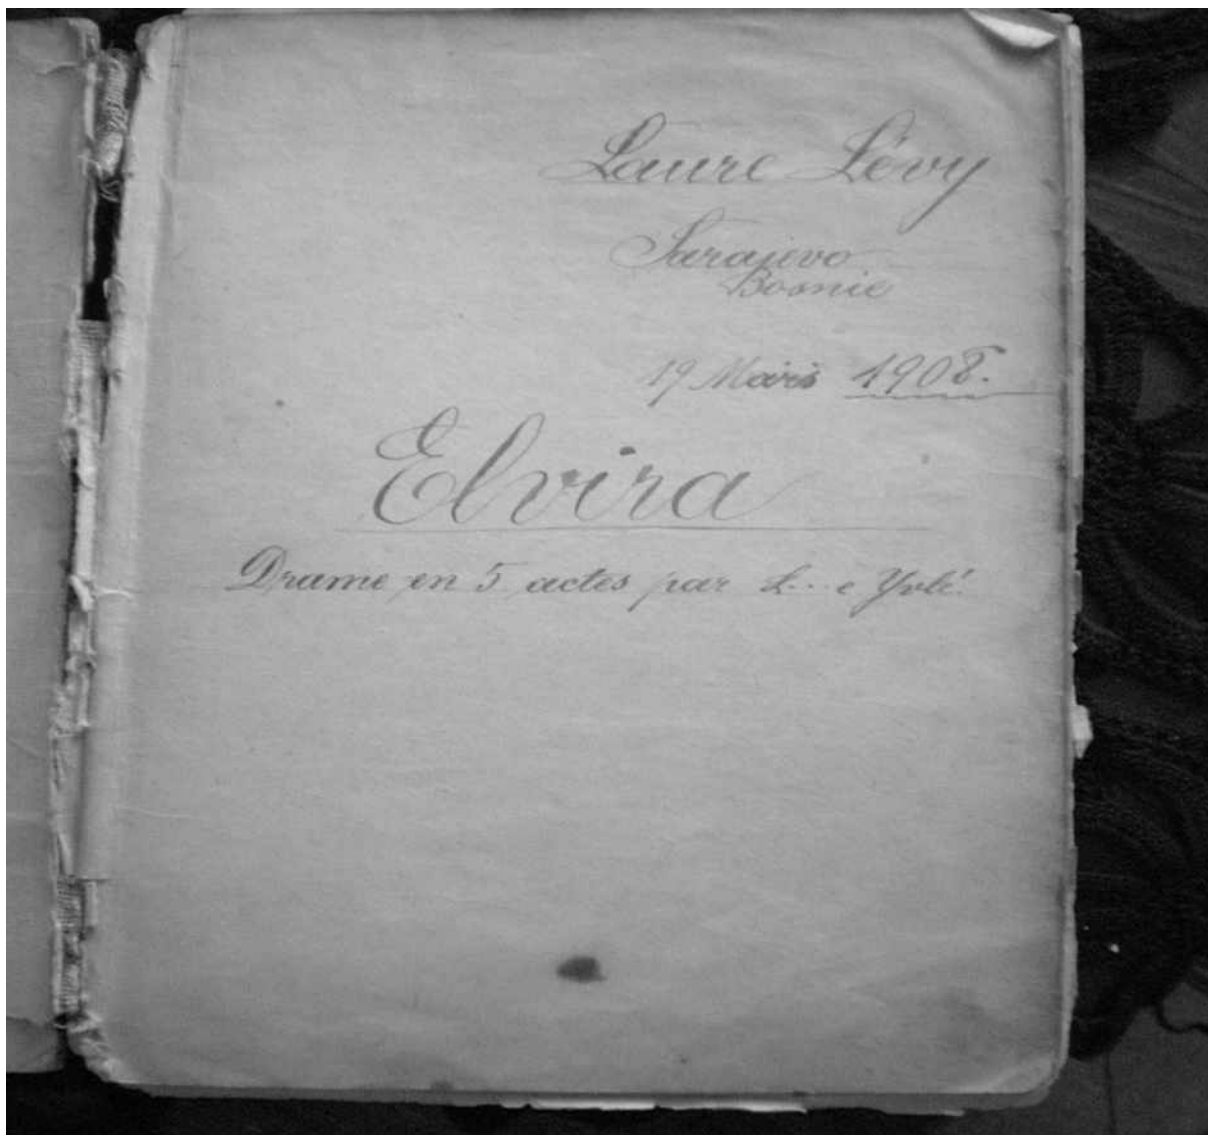 Laure Lévy
Sarajevo
Bosnie
19 Mars 1908.
Elvira
Drame en 5 actes par L... e Yvlé!